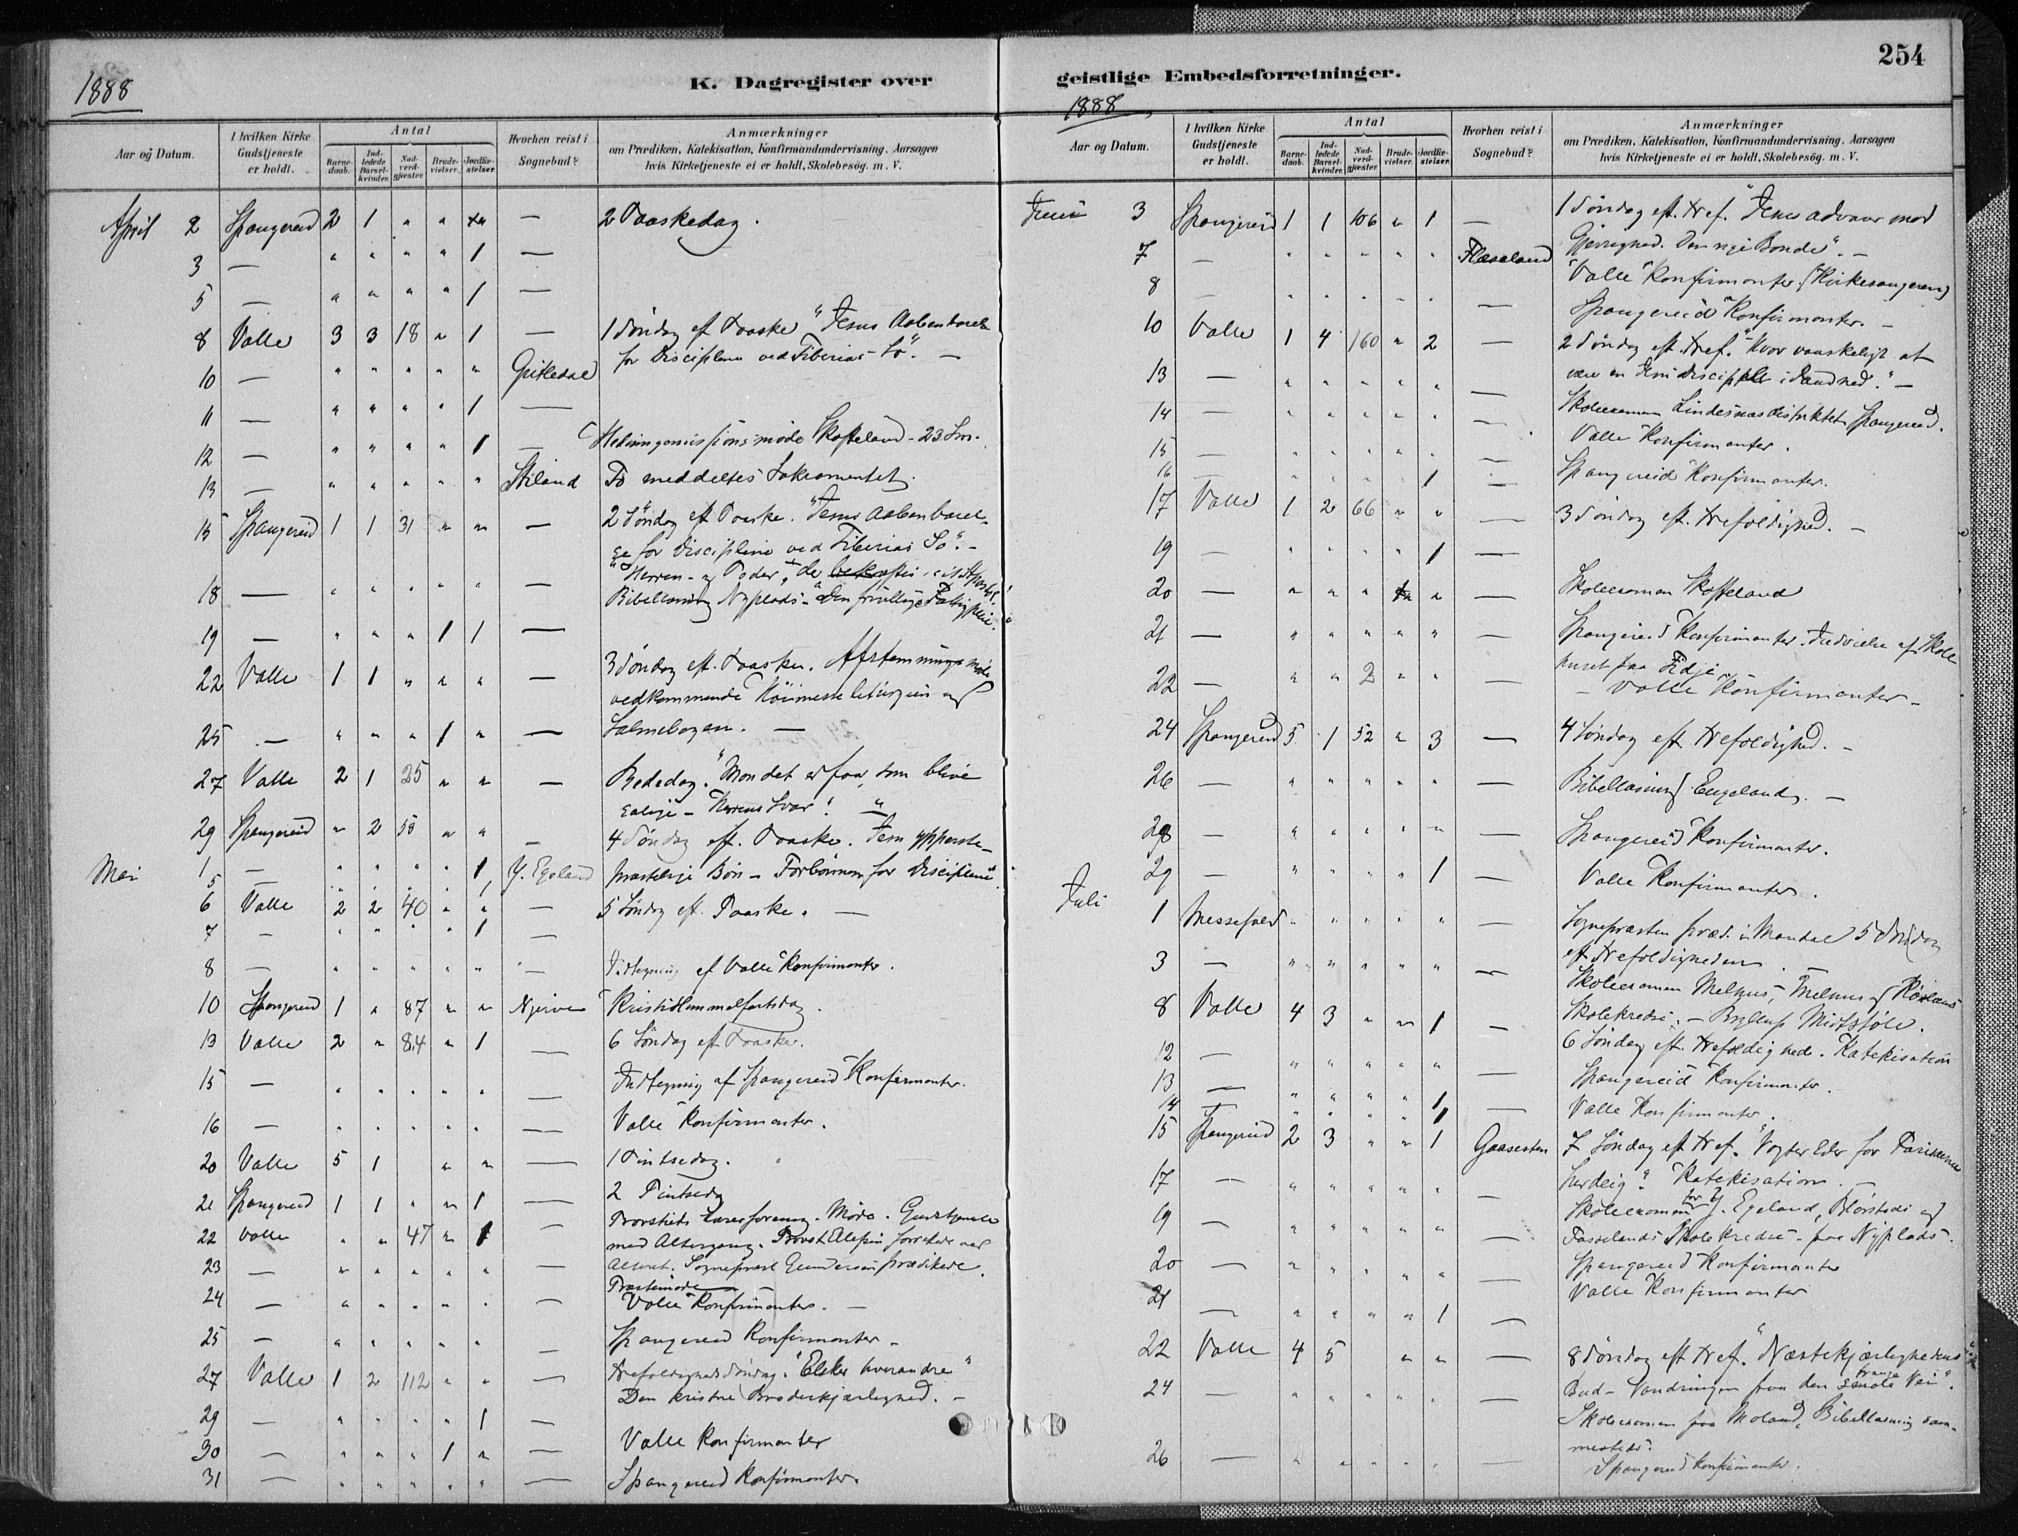 254
1888
K. Dagregister over
geistlige Embedsforretninger.
1888
Aar og Datum.
I hvilken Kirke Gudstjeneste er holdt.
Antal
Barnedaab.
Indledede Barselkvinder.
Nadverdgjester.
Brudevielser.
Jordfæstelser.
Hvorhen reist i Sognebud?
Anmærkninger
om Prædiken, Katekisation, Konfirmandundervisning, Aarsagen
hvis Kirketjeneste ei er holdt, Skolebesøg. m. V.
April 2 Spangereid 2 1 " " — 2 Paaskedag.
3 — " " " " 1 —
5 — " " " " 1 —
8 Valle 3 3 18 " 1 — 1 Söndag eft Paaske "Jesus Aabenbarelse
for Disciplene ved Tiberias-Sö". —
10 — " " " " "
11 — " " " " 1 —
12 — " " " " 1 — Hedningemissionsmöde Skofteland - 23
13 — " " " " " Stiland To meddeltes Sakramentet.
15 Spangereid 1 1 31 " " — 2 Söndag eft Paaske. "Jesus Aabenbarel-
se for Disciplene ved Tiberias Sö". -
18 — " " " " " — Bibellæsning Nyplads -
19 — " " " 1 1 —
22 Valle 1 1 " " " — 3 Söndag eft. Paaske. Afstemningsmöde
vedkommende Höimesseliturgien og
Salmebogen. —
25 — " " " 1 " —
27 Valle 2 1 25 " " — Bededag. "Mon det er faa, som blive
salige - Herrens Svar". —
29 Spangereid " 2 58 " " — 4 Söndag eft. Paaske. Jesu ypperste-
præstelige Bön - Forbönnen for Disciplene".
Mai 1 — " " " " 1 Y. Egeland
5
6 Valle 2 2 40 " " — 5 Söndag eft. Paaske. —
7 — " " " " 1 —
8 — " " " " " — Indtegning af Valle Konfirmanter.
10 Spangereid 1 " 87 " " Njerve Kristi Himmelfartsdag.
13 Valle 2 " 84 " 1 — 6 Söndag eft Paaske.
15 — " " " " " — Indtegning af Spangereid Konfirmanter.
16 — " " " " " — Valle Konfirmanter.
20 Valle 5 1 " " — 1 Pintsedag.
21 Spangereid 1 1 " " 1 — 2 Pintsedag
22 Valle " " 47 " 1 — Provstiets Lærerforening. Möde. Gudstjeneste
med Altergang. Provst forrettede ved
23 — " " " " " — Alteret. Sognepræst Gundersen prædikede.
Præstemöde
24 — " " " " " — Valle Konfirmanter. —
25 — " " " " " — Spangereid Konfirmanter -
27 Valle 1 2 112 " " — Trefoldigheds Söndag. "Elsker hverandre"
Den kristne Broderkjærlighed. -
29 — " " " " 1 —
30 — " " " 1 " — Valle Konfirmanter
31 — " " " " " — Spangereid Konfirmanter.
Aar og Datum.
I hvilken Kirke Gudstjeneste er holdt.
Antal
Barnedaab.
Indledede Barselkvinder.
Nadverdgjester.
Brudevielser.
Jordfæstelser.
Hvorhen reist i Sognebud?
Anmærkninger
om Prædiken, Katekisation, Konfirmandundervisning, Aarsagen
hvis Kirketjeneste ei er holdt, Skolebesög. m. V.
Juni 3 Spangereid 1 1 106 " 1 — 1 Söndag eft. Tref. "Jesus advarer mod
Gjerrighed. Den rige Bonde". -
7 — " " " " " Flaseland
8 — " " " " " — Valle Konfirmanter (Kirkesangeren)
Spangereid Konfirmanter. -
10 Valle 1 4 160 " 2 — 2 Söndag eft. Tref. "Hvor vanskeligt at
være en Jesu Discippel i Sandhed." -
13 — " " " " " —
14 — " " " " " — Skoleexamen Lindesnæsdistriktet Spangereid.
15 — " " " " " — Valle Konfirmanter.
16 — " " " " 1 — Spangereid Konfirmanter.
17 Valle 1 2 66 " " — 3 Söndag eft. Trefoldighed. -
19 — " " " " 1 —
20 — " " " " — Skoleexamen Skofteland
21 — " " " " " — Spangereid Konfirmanter. Indvielse af Skole
huset paa Fidje.
22 — " " 2 " " — Valle Konfirmanter -
24 Spangereid 5 1 52 " 3 — 4 Söndag eft Trefoldighed. -
26 — " " " " " — Bibellæsning Engeland. —
28 — " " " " " — Spangereid Konfirmanter.
29 — " " " " 1 — Valle Konfirmanter.
Juli 1 Messefald " " " " " — Sognepræsten præd. i Mandal 5 Söndag
eft Trefoldigheden. —
3 — " " " " " — Skoleexamen
8 Valle 4 3 " " 1 — 6 Söndag eft. Trefoldighed. Katekisation
12 — " " " " " — Spangereid Konfirmanter.
13 — " " " " 1 — Valle Konfirmanter.
14 — " " " " 1
15 Spangereid 2 3 " " 1 Gaasesten 7 Söndag eft Tref. "Vogter Eder for Farisæernes
Surdeig". Katekisation. —
17 — " " " " " — Skoleexamen for Y. Egeland, og
Skolekredse - paa Nyplads.
19 — " " " " " — Spangereid Konfirmanter
20 — " " " " " — Valle Konfirmanter
21 — " " " " 1 —
22 Valle 4 5 " " — 8 Söndag eft Tref. "Næstekjærlighedens
Bud - Vandringen paa den trange Vei".
24 — " " " " " — Skoleexamen paa Moland, Bibellæsning sam-
mesteds.
26 — " " " " — Spangereid Konfirmanter.